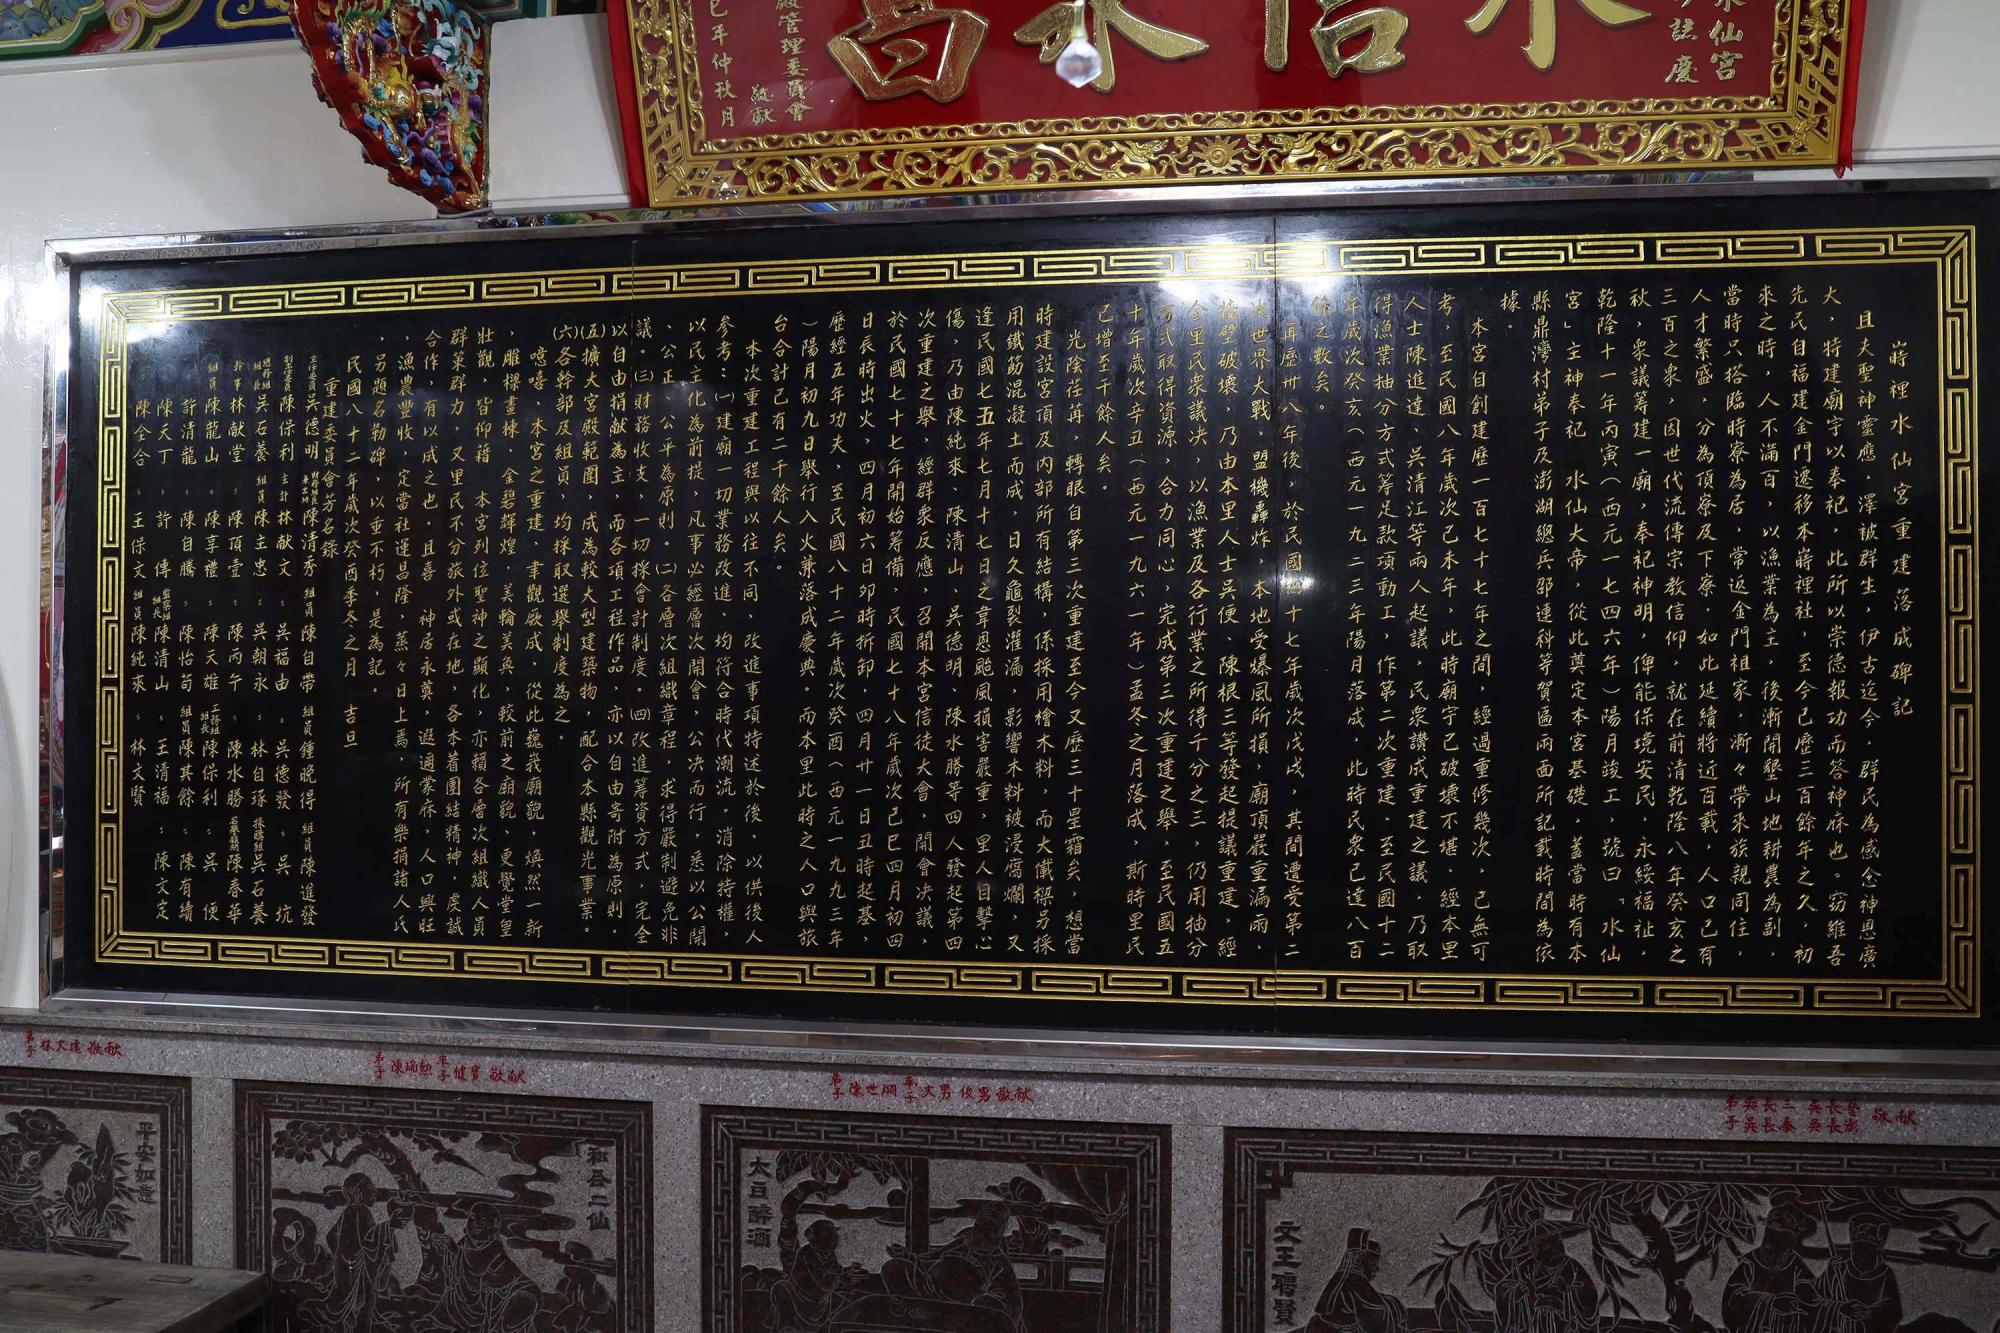 水信永昌
水仙宮
誌慶
殿管理委員會
敬獻
巳年仲秋月
嵵裡水仙宮重建落成碑記
且夫聖神靈應，澤被群生，伊古迄今，群民為感念神恩廣
大，特建廟宇以奉祀，此所以崇德報功而答神庥也。窃維吾
先民自福建金門遷移本嵵裡社，至今已歷三百餘年之久，初
來之時，人不滿百，以漁業為主，後漸開墾山地耕農為副，
當時只搭臨時寮為居，常返金門祖家，漸々帶來族親同住，
人才繁盛，分為頂寮及下寮，如此延續將近百載，人口已有
三百之眾，因世代流傳宗教信仰，就在前清乾隆八年癸亥之
秋，眾議筹建一廟，奉祀神明，俾能保境安民，永綏福祉，
乾隆十一年丙寅（西元一七四六年）陽月竣工，號曰「水仙
宮」主神奉祀　水仙大帝，從此奠定本宮基礎，蓋當時有本
縣鼎灣村弟子及澎湖總兵邵連科等賀匾兩面所記載時間為依
據。
本宮自創建歷一百七十七年之間，經過重修幾次，已無可
考，至民國八年歲次己未年，此時廟宇已破壞不堪，經本里
人士陳進達、吳清江等兩人起議，民眾讚成重建之議，乃取
得漁業抽分方式筹足款項動工，作第二次重建，至民國十二
年歲次癸亥（西元一九二三年陽月落成，此時民眾已達八百
餘之數矣。
再歷卅八年後，於民國四十七年歲次戊戌，其間遭受第二
次世界大戰　盟機轟炸　本地受爆風所損，廟頂嚴重漏雨，
牆壁破壞，乃由本里人士吳便、陳根三等發起提議重建，經
全里民眾議決，以漁業及各行業之所得千分之三，仍用抽分
方式取得資源，合力同心，完成第三次重建之舉，至民國五
十年歲次辛丑（西元一九六一年）孟冬之月落成，斯時里民
已增至千餘人矣。
光陰荏苒，轉眼自第三次重建至今又歷三十星霜矣，想當
時建設宮頂及內部所有結構，係採用檜木料，而大樑另採
用鐵筋混凝土而成，日久龜裂灌漏，影響木料被浸腐爛，又
逢民國七五年七月十七日之韋恩颱風損害嚴重，里人目擊心
傷，乃由陳純來、陳清山、吳德明、陳水勝等四人發起第四
次重建之舉，經群眾反應，召開本宮信徒大會，開會決議，
於民國七十七年開始筹備，民國七十八年歲次己巳四月初四
日辰時出火，四月初六日卯時拆卸，四月廿一日丑時起基，
歷經五年功夫，至民國八十二年歲次癸酉（西元一九九三年
）陽月初九日舉行入火兼落成慶典。而本里此時之人口與旅
台合計已有二千餘人矣。
本次重建工程與以往不同，改進事項特述於後，以供後人
參考：㈠建廟一切業務改進，均符合時代潮流，消除特權，
以民主化為前提，凡事必經層次開會，公決而行，悉以公開
、公正、公平為原則。㈡各層次組織章程，求得嚴制避免非
議。㈢財務收支，一切採會計制度。㈣改進筹資方式，完全
以自由捐献為主，而各項工程作品，亦以自由寄附為原則。
㈤擴大宮殿範圍，成為較大型建築物，配合本縣觀光事業。
㈥各幹部及組員，均採取選舉制度為之。
噫嘻，本宮之重建，聿觀厥成，從此巍峩廟貌，煥然一新
，雕樑畫棟，金碧輝煌，美輪美奐，較前之廟貌，更覺堂皇
壯觀，皆仰藉　本宮列位聖神之顯化，亦賴各層次組織人員
群策群力，又里民不分旅外或在地，各本着團結精神，虔誠
合作，有以成之也。且喜　神居永奠，遐邇蒙庥，人口興旺
，漁農豐收，定當社運昌隆，蒸々日上焉，所有樂捐諸人氏
，另題名勒碑，以垂不朽，是為記。
民國八十二年歲次癸酉季冬之月　吉旦
重建委員會芳名錄
主任委員吳德明　陳清秀　組員陳自帶　組員鍾晚得　組員陳進發
副主任委員陳保利　主計林献文　〃吳福由　〃吳德發　〃吳坑
總務組組長吳石養　組員陳主忠　〃吳朝永　〃林自琢　採購組吳石養
幹事林献堂　〃陳頂壹　〃陳丙午　〃陳水勝　名譽顧問陳春華
組員陳龍山　〃陳享禮　〃陳天雄　工務組組長陳保利　〃吳便
〃許清龍　〃陳自勝　〃陳怡苟　組員陳其餘　〃陳有續
〃陳天丁　〃許傳　監察組組長陳清山　〃王清福　〃陳文定
〃陳全合　〃王保文　組員陳純來　〃林文賢
弟子林大遠敬献
弟子陳瑞勲率子健寶敬献
弟子陳世炯率子文男俊男敬献
弟子吳長三吳長藝吳長泰吳長澎敬献
平安如意
和合二仙
太白醉酒
文王聘賢